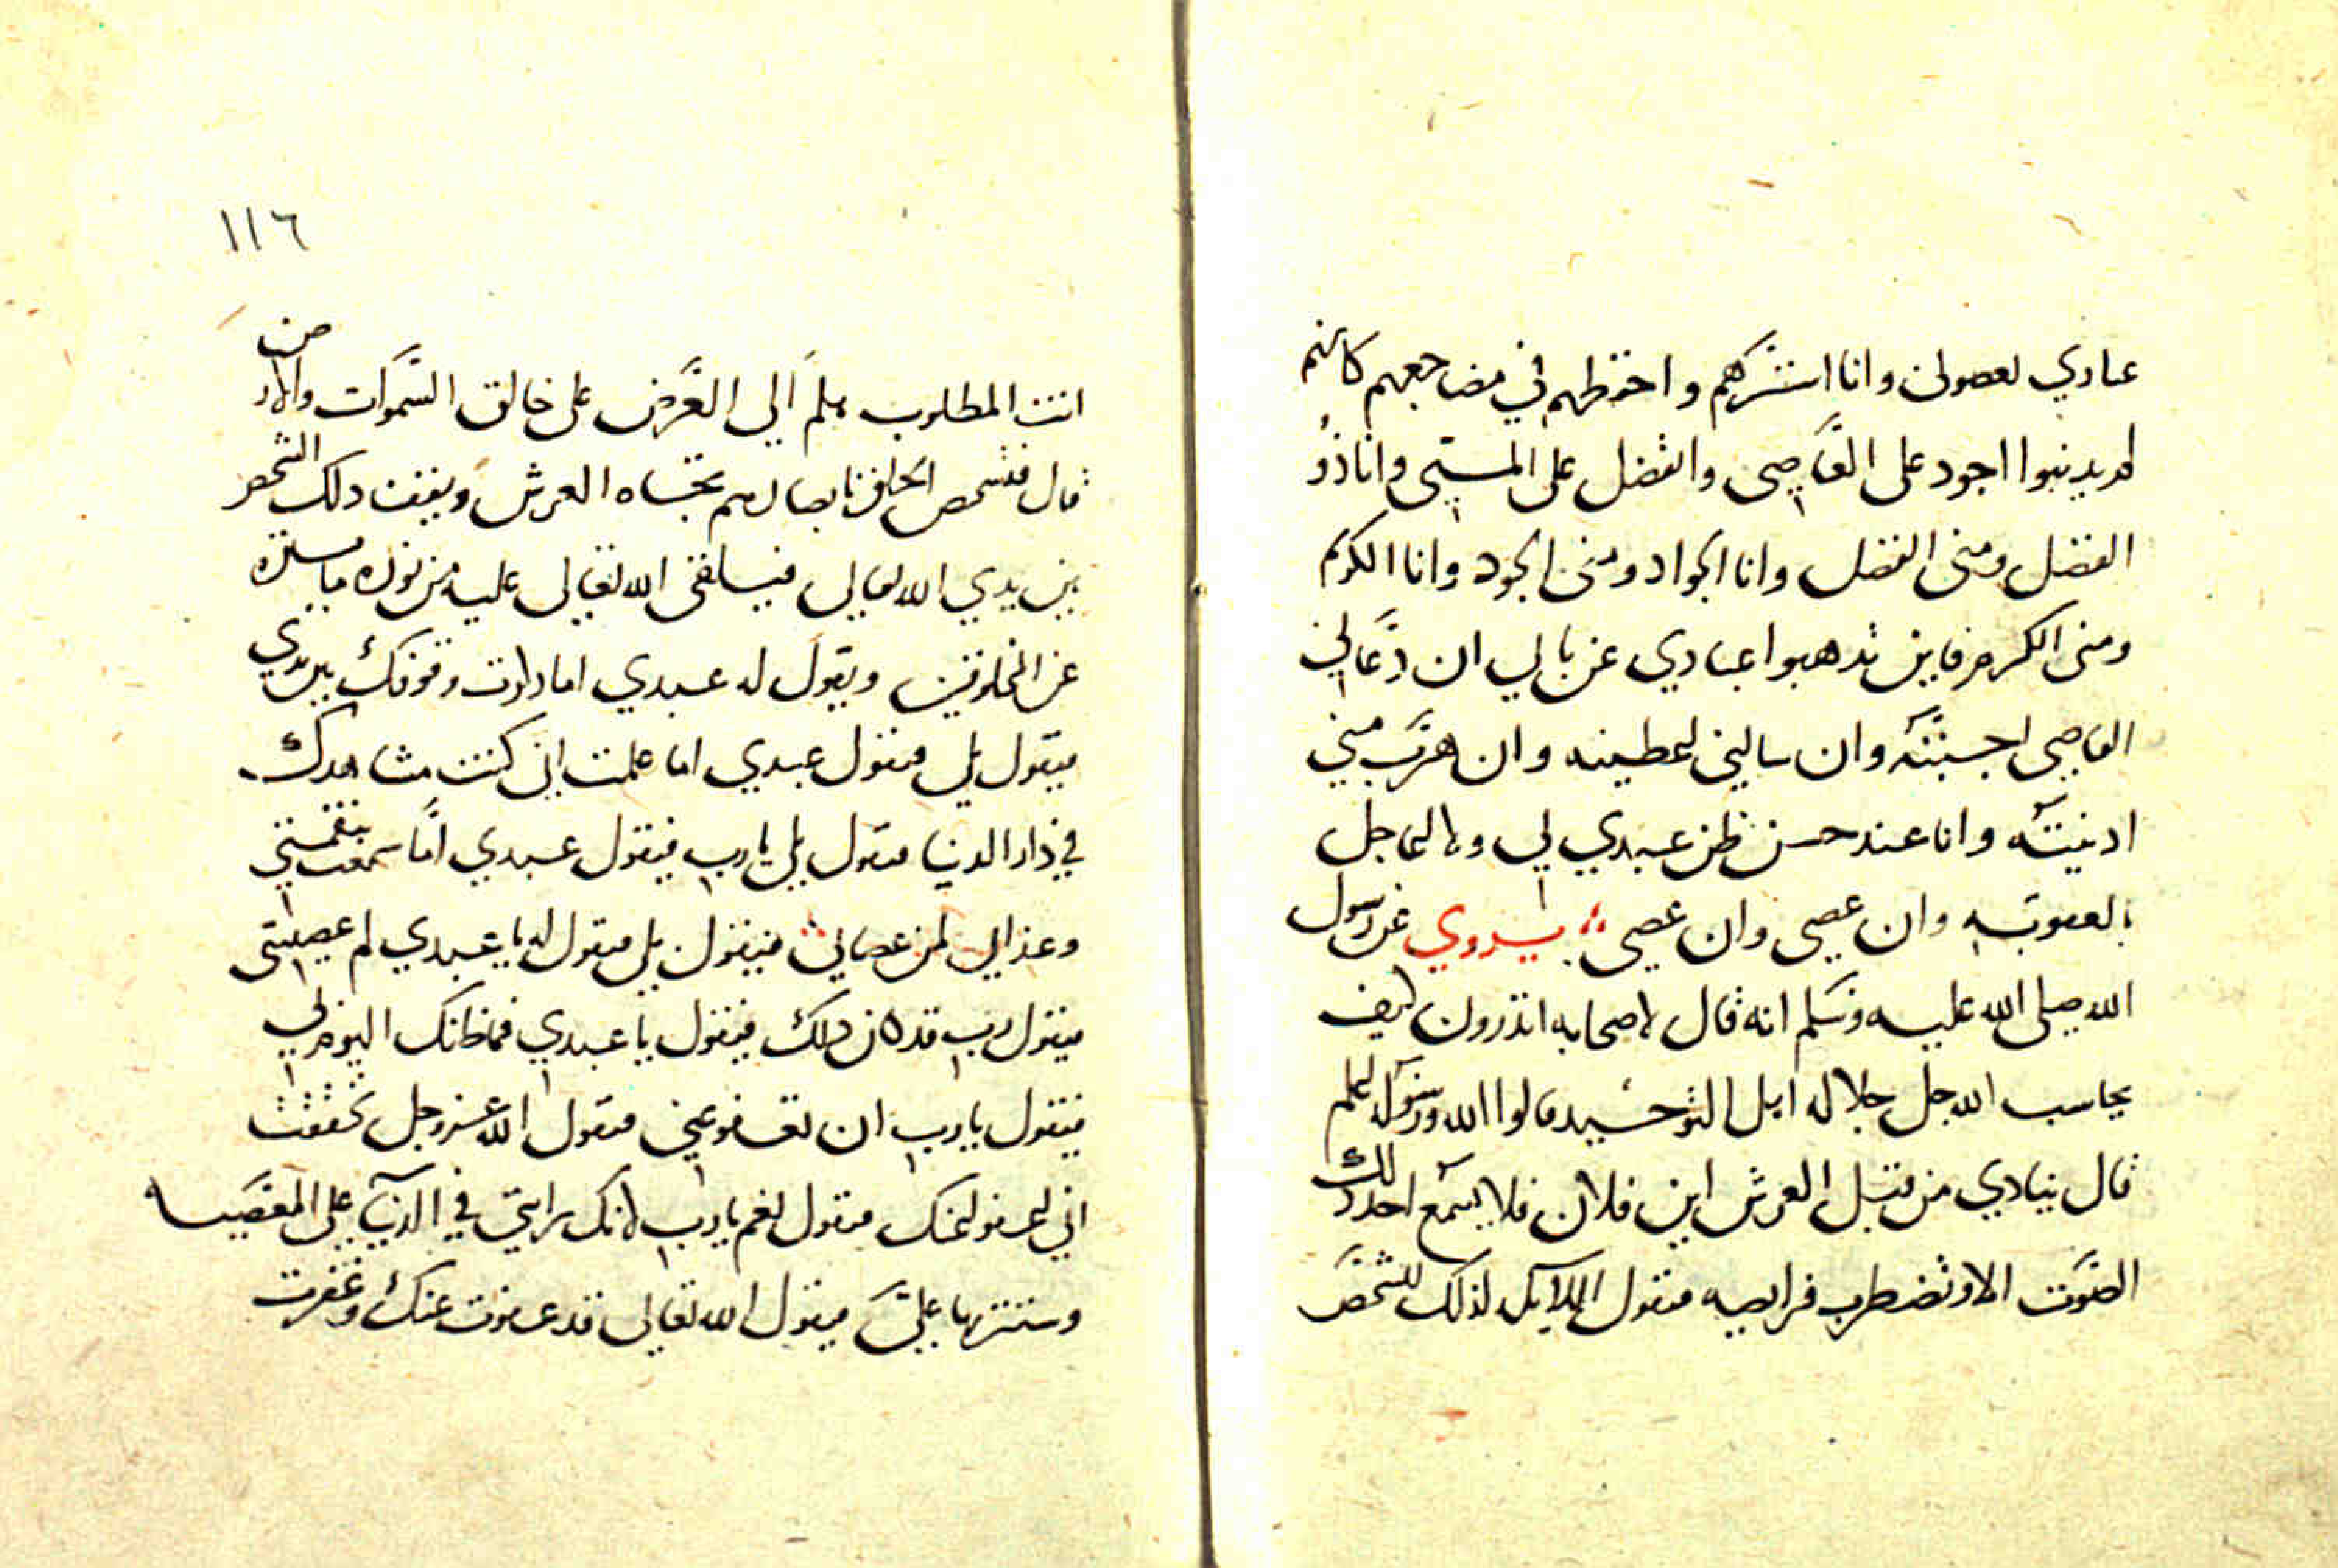 عبادي يعصوني وانا استرهم واحفظهم في مضاجعهم كانهم
لم يذنبوا اجود على العاصي واتفضل على المسي وانا ذو
الفضل ومني الفضل وانا الجواد ومني الجود وانا الكريم
ومني الكرم فاين تذهبوا عبادي عن بابي ان دعاني
العاصي اجبته وان سالني اعطيته وان هرب مني
ادنيته وانا عند حسن ظن عبدي لي ولا اعاجل
بالعقوبه وان عصى وان عصى يروي عن رسول
الله صلى الله عليه وسلم انه قال لاصحابه اتدرون كيف
يحاسب الله جل جلاله اهل التوحيد قالوا الله ورسوله اعلم
قال ينادي من قبل العرش اين فلان فلا يسمع احد ذلك
الصوت الا وتضطرب فرايصه فتقول الملايكه لذلك الشخص
١١٦
انت المطلوب هلم الي العرض على خالق السموات والارض
قال فتشخص الخلق بابصارهم تجاه العرش ويقف ذلك الشخص
بين يدي الله تعالي فيلقى الله تعالي عليه من نوره ما يستره
عن المخلوقين ويقول له عبدي اما دارت وقوفك بين يدي
فيقول بلي فيقول عبدي اما علمت اني كنت مشاهدك
في دار الدنيا فيقول بلي يارب فيقول عبدي اما سمعت بنقمتي
وعذابي لمن عصاني فيقول بلي فيقول له يا عبدي لم عصيتني
فيقول رب قد كان ذلك فيقول يا عبدي فما ظنك اليوم لي
فيقول يارب ان تعفو عني فيقول الله عز وجل تحققت
اني اعفو عنك فيقول نعم يارب لانك رايتني في الدنيا على المعصيه
وسترتها علي فيقول الله تعالي قد عفوت عنك وغفرت